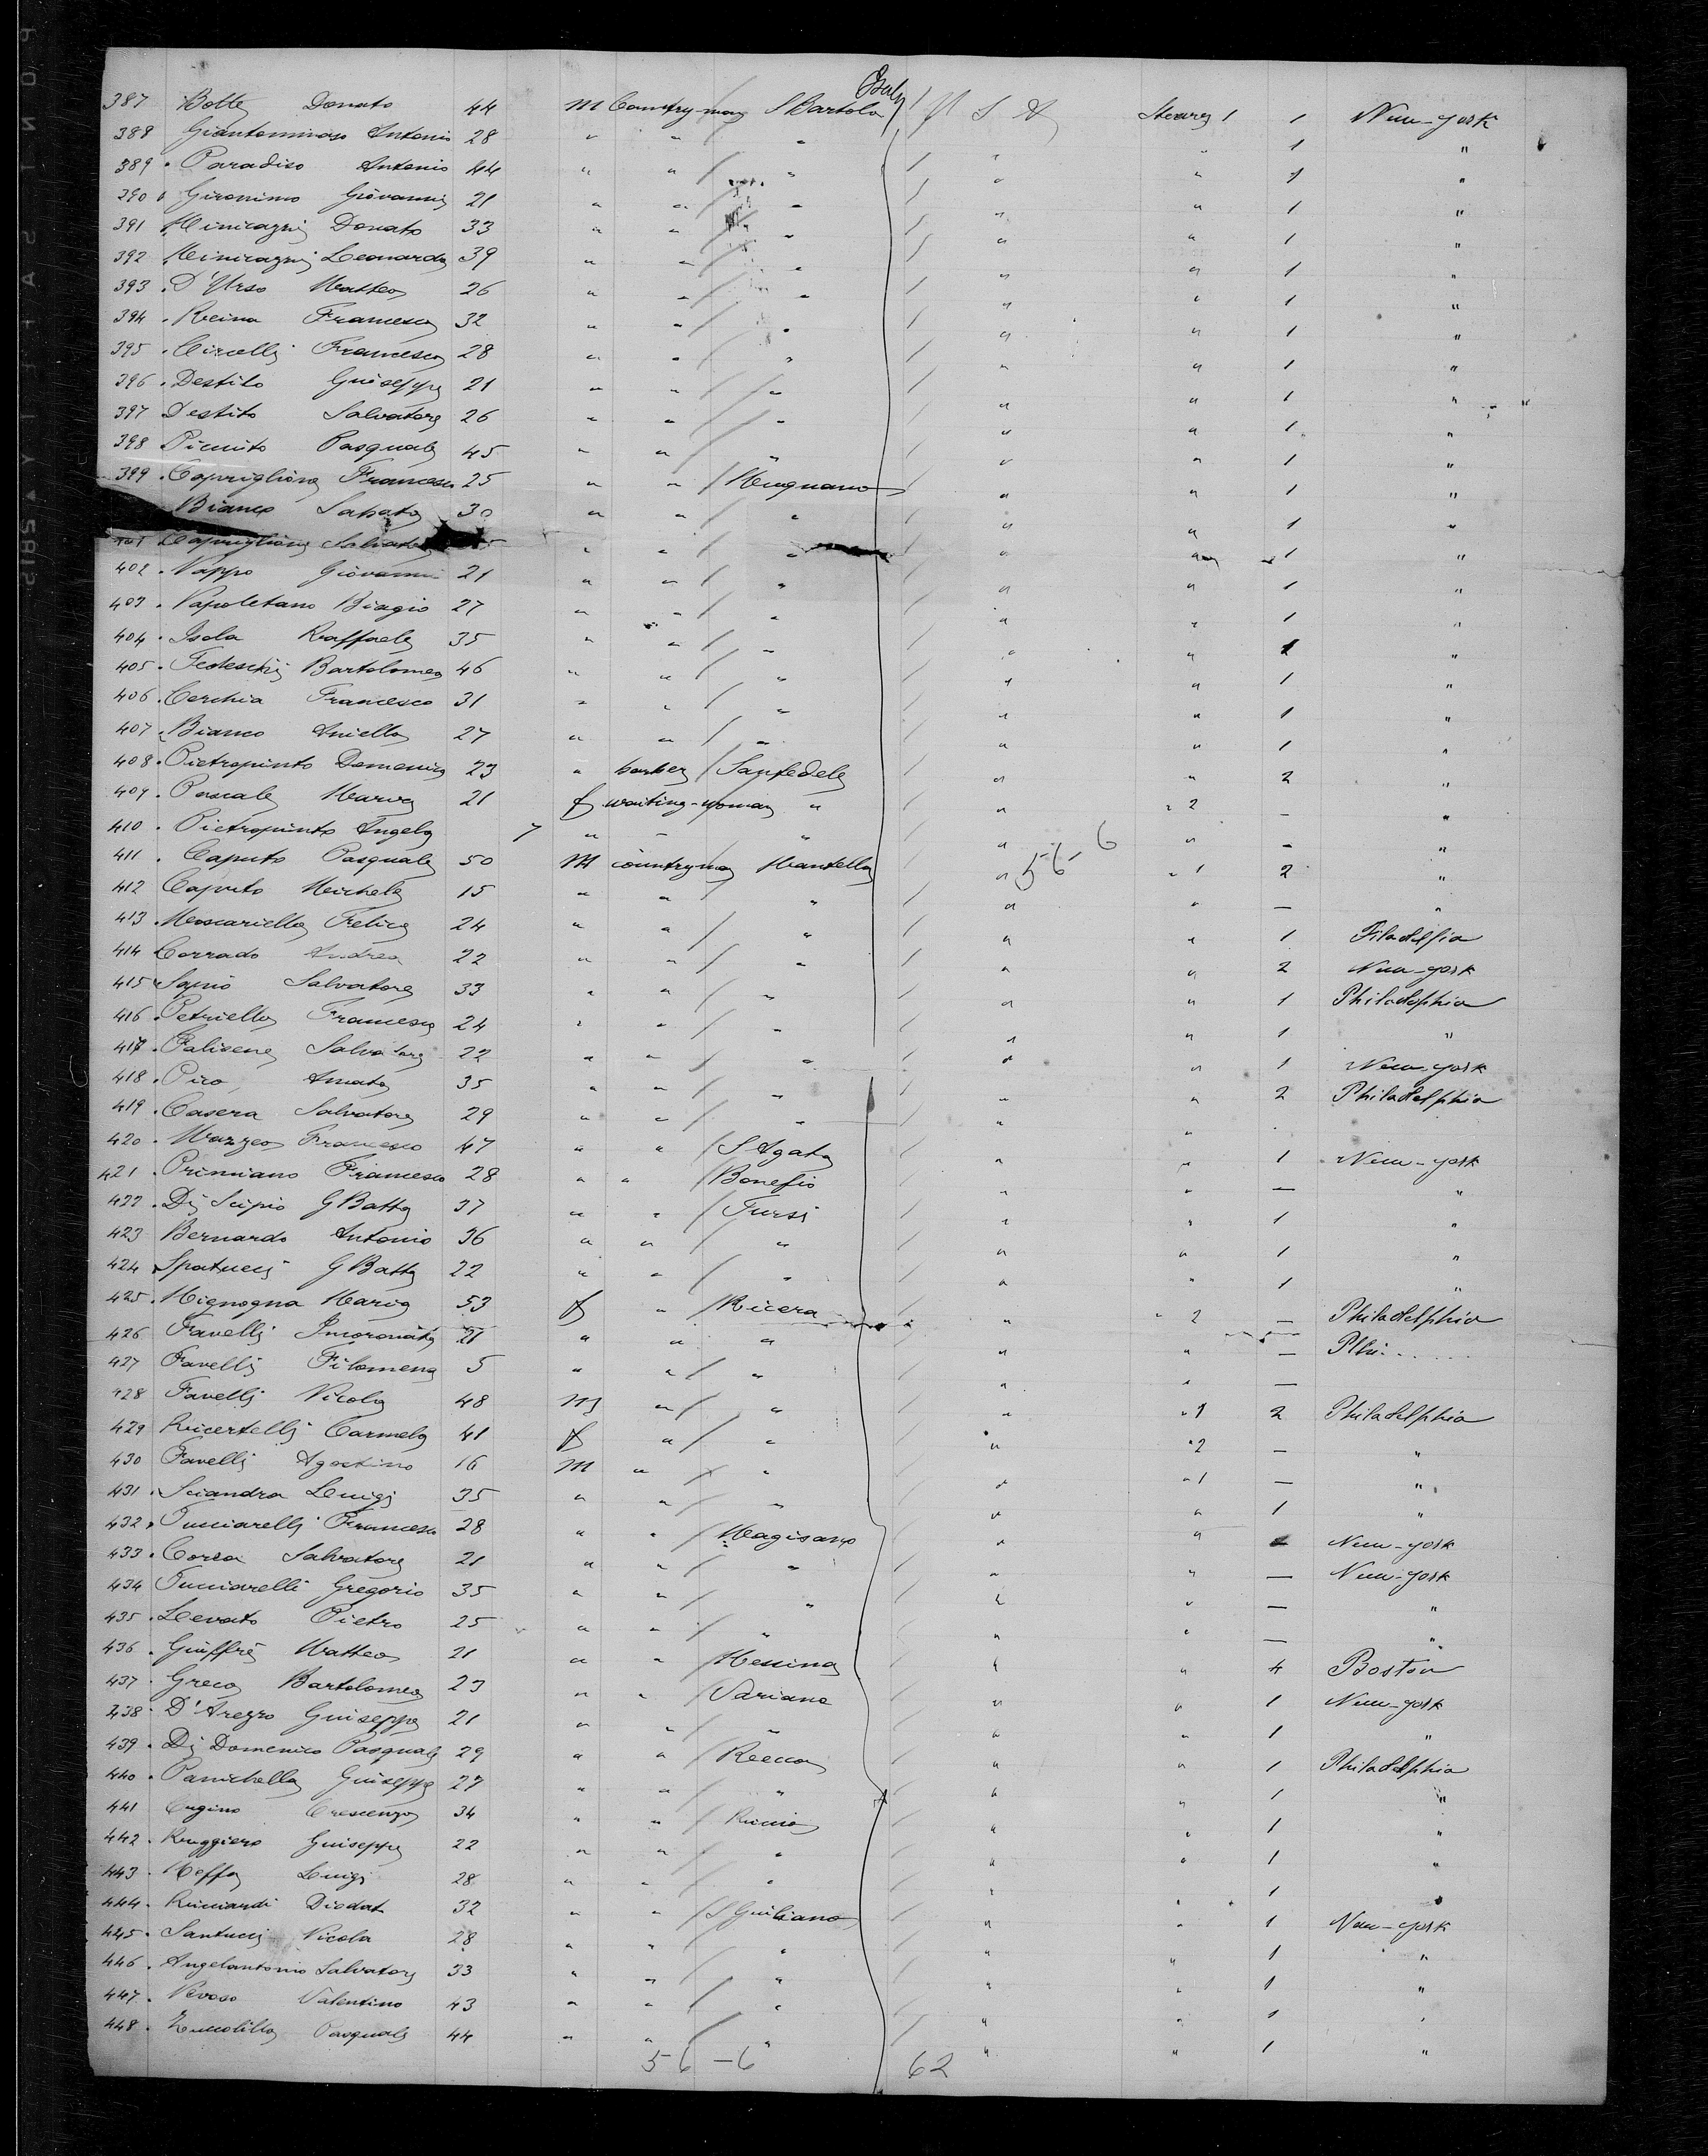 Italy
387 Botte Donato 44 m Countryman S Bartola U S A Steerag 1 1 New-York
388 Giantommaso Antonio 28 " " " " " 1 "
389 Paradiso Antonio 44 " " " " " 1 "
390 Gironimo Giovanni 21 " " " " " 1 "
391 Minicazzi Donato 33 " " " " " 1 "
392 Minicazzi Leonardo 39 " " " " " 1 "
393 D'Urso Matteo 26 " " " " " 1 "
394 Reina Francesco 32 " " " " " 1 "
395 Circelli Francesco 28 " " " " " 1 "
396 Destito Guiseppe 21 " " " " " 1 "
397 Destito Salvatore 26 " " " " " 1 "
398 Pasquale 45 " " " " " 1 "
399 Capriglione Francesco 25 " " Mugnano " " 1 "
Bianco Sabato 30 " " " " " 1 "
401 Capriglione Salvatore " " " " " 1 "
402 Nappo Giovanni 21 " " " " " 1 "
403 Napoletano Biagio 27 " " " " " 1 "
404 Isola Raffaele 35 " " " " " 1 "
405 Tedeschi Bartolomeo 46 " " " " " 1 "
406 Cerchia Francesco 31 " " " " " 1 "
407 Bianco Aniello 27 " " " " " 1 "
408 Pietropinto Domenico 23 " barber Santedele " " 2 "
409 Pascale Maria 21 f waiting-woman " " " 2 – "
410 Pietropinto Angela 7 " – " " " – "
411 Caputo Pasquale 50 M countryman Mantella " 56-6 " 1 2 "
412 Caputo Michele 15 " " " " " — "
413 Moscariello Felice 24 " " " " " 1 Filadelfia
414 Corrado Andrea 22 " " " " " 2 New-York
415 Sapio Salvatore 33 " " " " " 1 Philadelphia
416 Petriello Francesco 24 " " " " " 1 "
417 Falisene Salvatore 22 " " " " " 1 New-York
418 Pico Amato 35 " " " " " 2 Philadelphia
419 Casera Salvatore 29 " " " " "
420 Mazzeo Francesco 47 " " S Agata " " 1 New-York
421 Primiano Francesco 28 " " Bonefio " " — "
422 Di Scipio G Batta 37 " " Tursi " " 1 "
423 Bernardo Antonio 36 " " " " " 1 "
424 Spatucci G Batta 22 " " " " " 1 "
425 Mignogna Maria 53 f " Ricera " " 2 — Philadelphia
426 Favelli Incoronata 21 " " " " " — Phi
427 Favelli Filomena 5 " " " " " —
428 Favelli Nicola 48 M " " " " 1 2 Philadelphia
429 Ricertelli Carmela 41 f " " " " 2 — "
430 Favelli Agostino 16 M " " " " 1 — "
431 Sciandra Luigi 35 " " " " " 1 "
432 Tucciarelli Francesco 28 " " Magisano " " New-York
433 Corea Salvatore 21 " " " " " — New-York
434 Tucciarelli Gregorio 35 " " " " " — "
435 Levato Pietro 25 " " " " " — "
436 Guiffrè Matteo 21 " " Messina " " 4 Boston
437 Greco Bartolomeo 23 " " Variana " " 1 New-York
438 D'Arezzo Guiseppe 21 " " " " " 1 "
439 Di Domenico Pasquale 29 " " Recca " " 1 Philadelphia
440 Panichella Guiseppe 27 " " " " " 1 "
441 Cugino Crescenzo 34 " " Riccia " " 1 "
442 Ruggiero Guiseppe 22 " " " " " 1 "
443 Meffa Luigi 28 " " " " " 1 "
444 Ricciardi Diodat 32 " " S Guiliano " " 1 New-York
445 Santucci Nicola 28 " " " " " 1 "
446 Angelantonio Salvatore 33 " " " " " 1 "
447 Valentino 43 " " " " " 1 "
448 Zuccolillo Pasquale 44 " " " " " 1 "
56-6 62